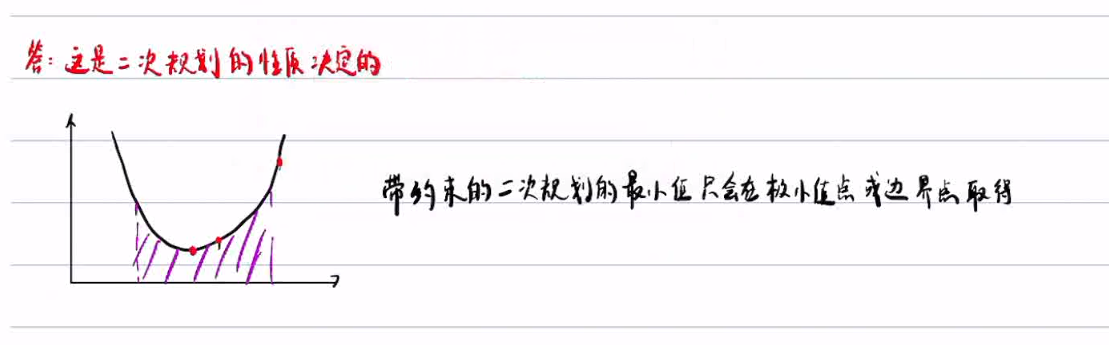 答：这是二次规划的性质决定的
带约束的二次规划的最小值只会在极小值点或边界点取得